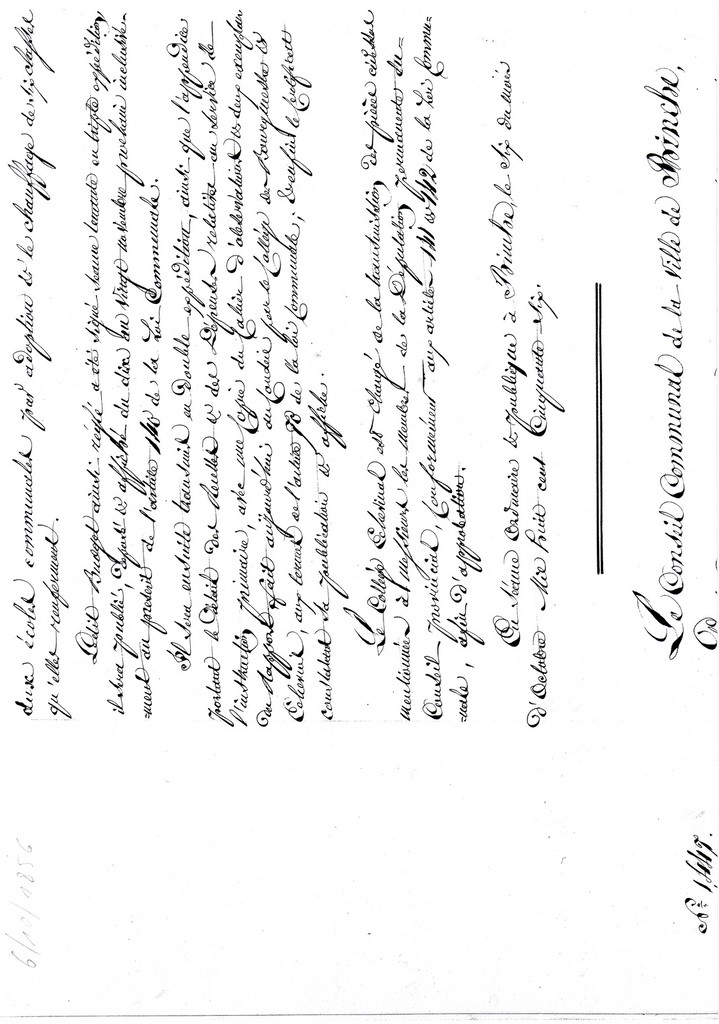 6/10/1856
deux écoles communales par adoption et le chauffage des six chaffre
qu'elles renferment.
Ledit Budget ainsi réglé a été signé séance tenante en triple expédition,
il sera publié, déposé et affiché du dix au vingt novembre prochain inclusive-
-ment au prescrit de l'article 140 de la Loi Communale.
Il sera ensuite transmis en double expédition, ainsi que l'appendice
portant le détail des Recettes et des Dépenses relatives au service de
l'instruction primaire, avec une Copie du Cahier d'observations et deux exemplaires
du Rapport fait aujourd'hui au Conseil par le Collège des Bourgmestre et
Echevins, aux termes de l'article 70 de la loi Communale; Enfin le Certificat
constatant la publication et affiche.
Le Collège Echevinal est chargé de la transmission des pièces ci-dessus
mentionnées à Messieurs les Membres de la Députation Permanente du
Conseil provincial, Conformément aux articles 141 et 142 de la Loi Commu-
-nale, afin d'approbation.
En séance Ordinaire et publique à Binche, le Six du mois
d'Octobre Mil huit cent Cinquante Six.
N° 1,447.
Le Conseil Communal de la Ville de Binche,